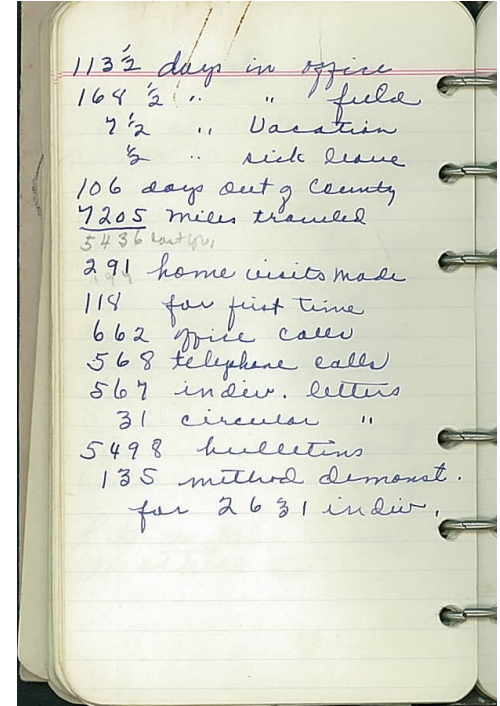 113½ days in office
168 ½ " " field
7½ " Vacation
½ " sick leave
106 days out of County
7205 miles traveled
5436 last yr.
291 home visits made
118 for first time
662 office calls
568 telephone calls
567 indiv. letters
31 circular "
5498 bulletins
135 method demonst.
for 2631 indiv.